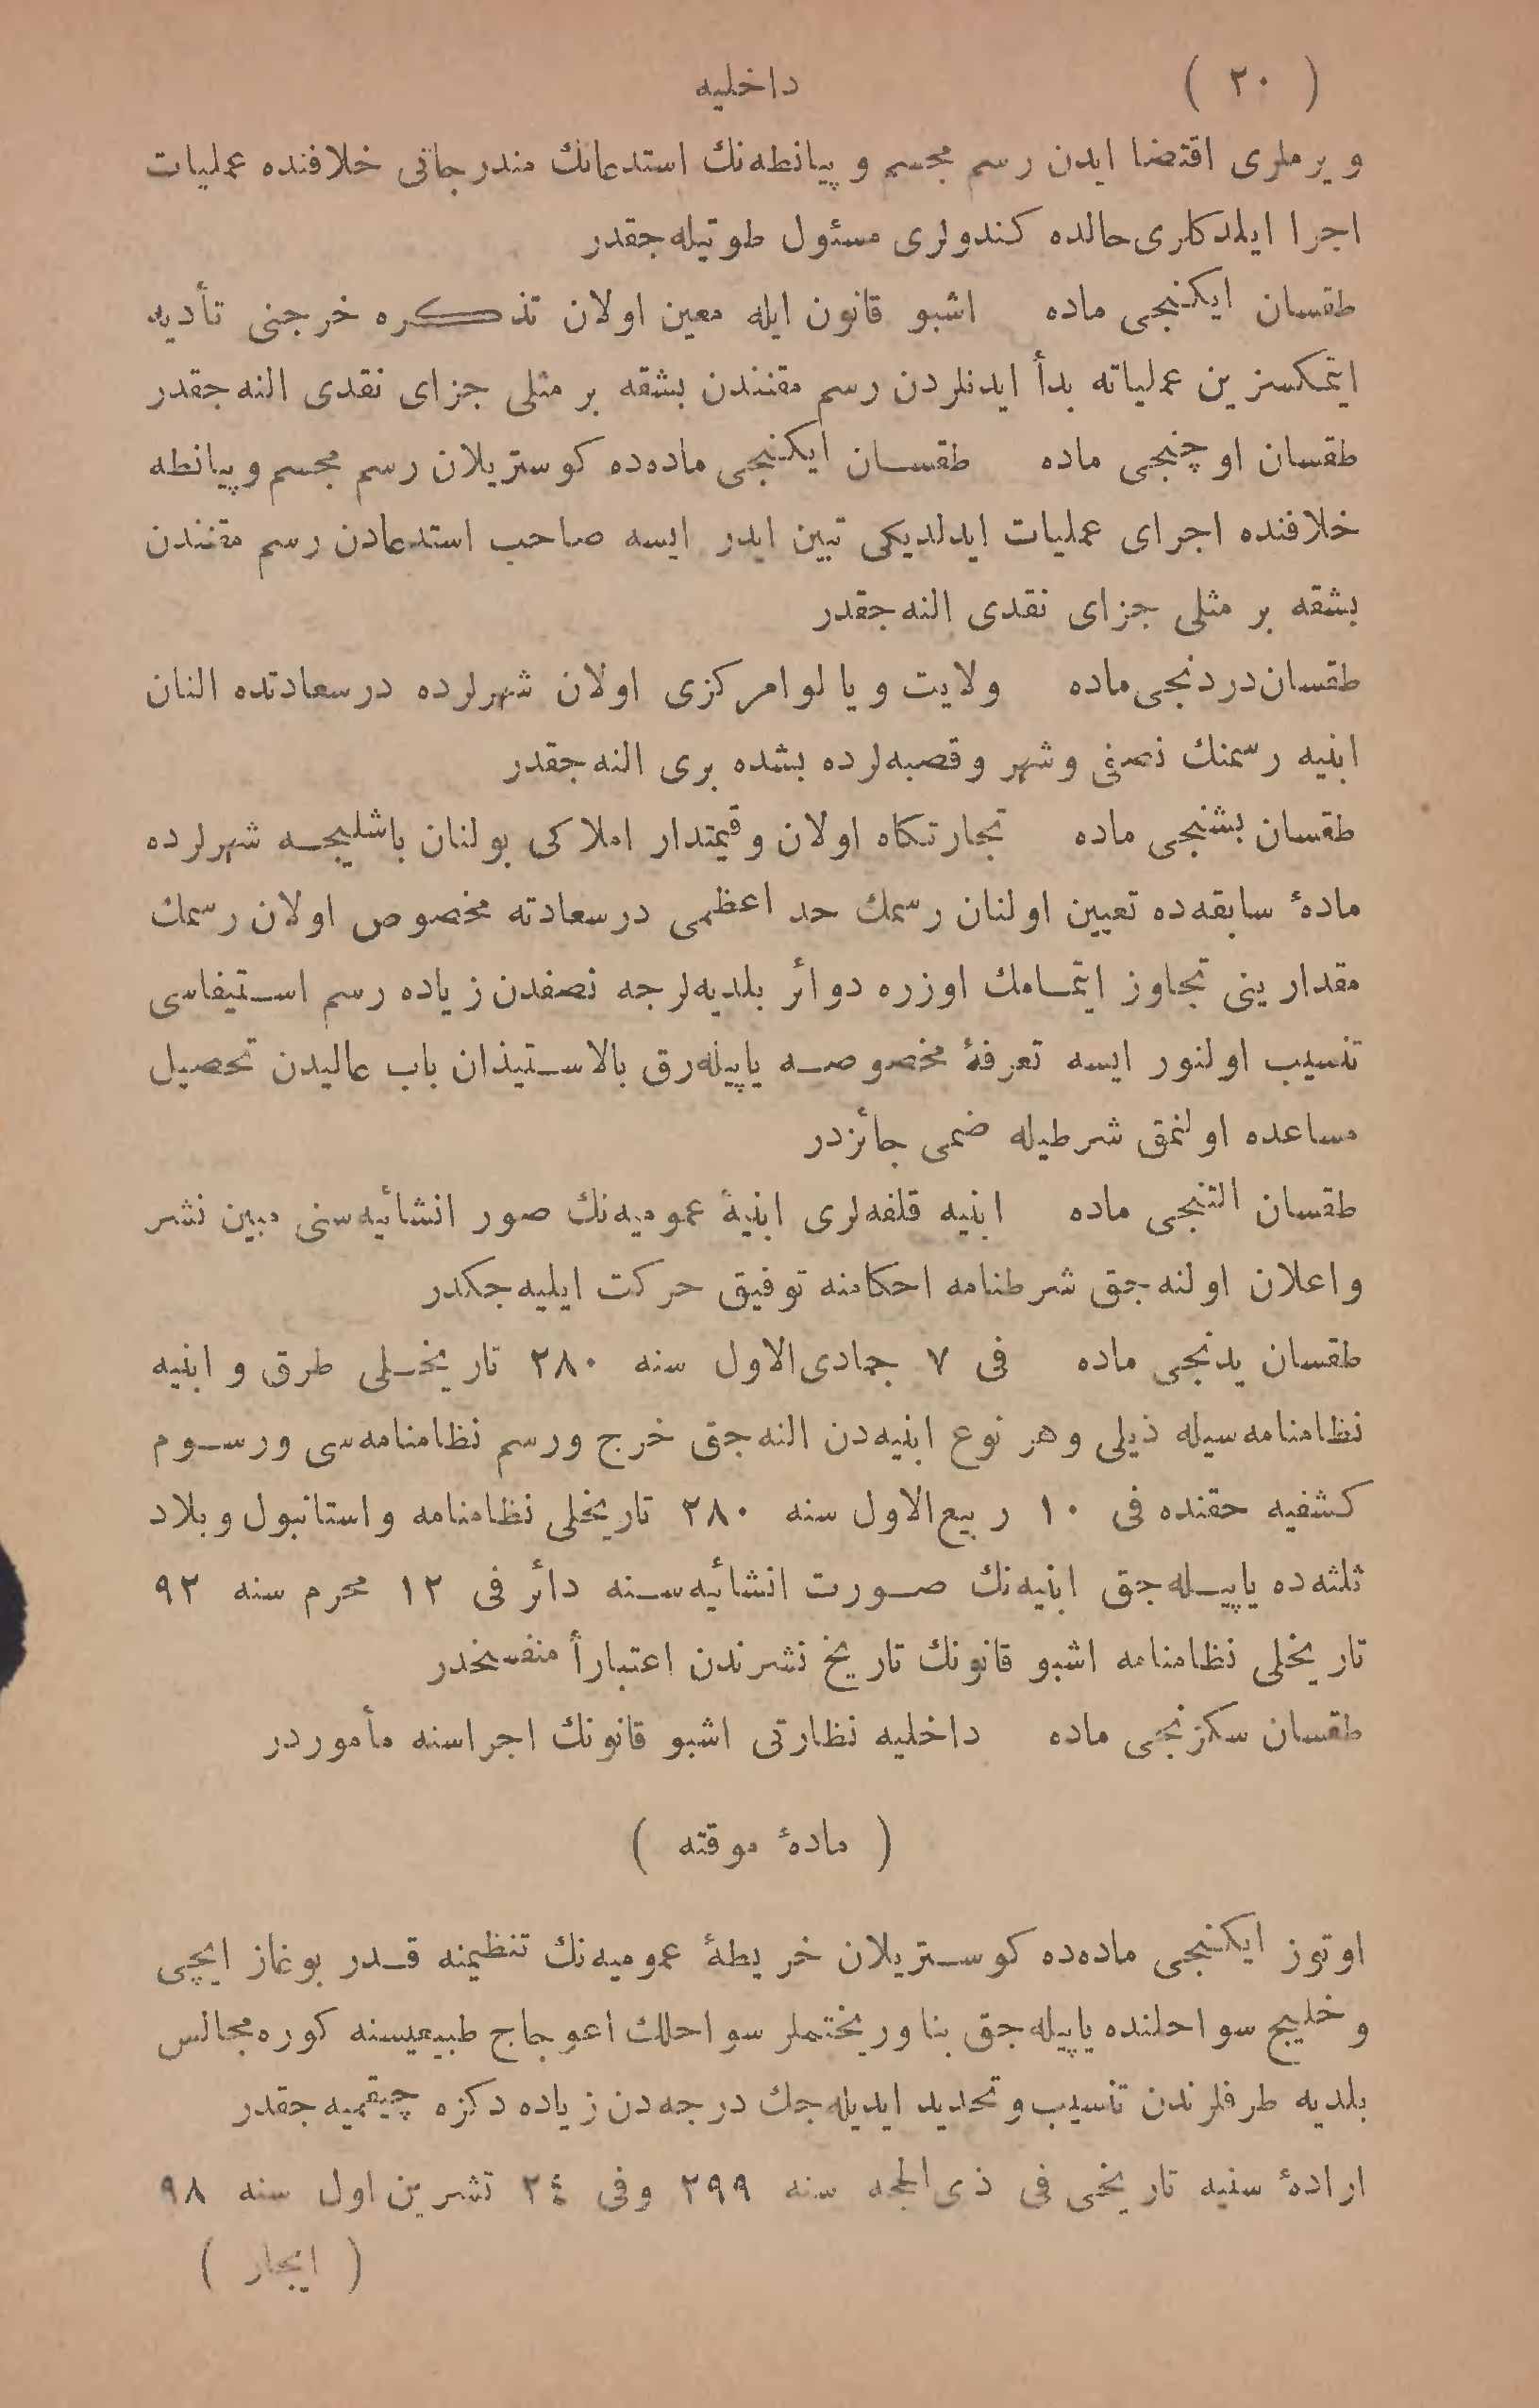 ( ٢٠ ) داخليه
ويرملرى اقتضا ايدن رسم مجسم و پيانطه‌نك استدعانك مندرجاتى خلافنده عمليات
اجرا ايلدكلرى حالده كندولرى مسئول طوتيله‌جقدر
طقسان ايكنجى ماده اشبو قانون ايله معين اولان تذكره خرجنى تأديه
ايتمكسزين عملياته بدأ ايدنلردن رسم مقنندن بشقه بر مثلى جزاى نقدى النه‌جقدر
طقسان اوچنجى ماده طقسان ايكنجى ماده‌ده كوستريلان رسم مجسم و پيانطه
خلافنده اجراى عمليات ايدلديكى تبين ايدر ايسه صاحب استدعادن رسم مقنندن
بشقه بر مثلى جزاى نقدى النه‌جقدر
طقسان دردنجى ماده ولايت و يا لوا مركزى اولان شهرلرده درسعادتده النان
ابنيه رسمنك نصفى و شهر و قصبه‌لرده بشده برى النه‌جقدر
طقسان بشنجى ماده تجارتكاه اولان و قيمتدار املاكى بولنان باشليجه شهرلرده
مادهٔ سابقه‌ده تعيين اولنان رسمك حد اعظمى درسعادته مخصوص اولان رسمك
مقدارينى تجاوز ايتمامك اوزره دوائر بلديه‌لرجه نصفدن زياده رسم استيفاسى
تنسيب اولنور ايسه تعرفهٔ مخصوصه ياپيله‌رق بالاستيذان باب عاليدن تحصيل
مساعده اولنمق شرطيله ضمى جائزدر
طقسان التنجى ماده ابنيه قلفه‌لرى ابنيهٔ عموميه‌نك صور انشائيه‌سنى مبين نشر
و اعلان اولنه‌جق شرطنامه احكامنه توفيق حركت ايليه‌جكدر
طقسان يدنجى ماده فى ٧ جمادى‌الاول سنه ٢٨٠ تاريخلى طرق و ابنيه
نظامنامه‌سيله ذيلى و هر نوع ابنيه‌دن النه‌جق خرج و رسم نظامنامه‌سى و رسوم
كشفيه حقنده فى ١٠ ربيع‌الاول سنه ٢٨٠ تاريخلى نظامنامه و استانبول و بلاد
ثلثه‌ده ياپيله‌جق ابنيه‌نك صورت انشائيه‌سنه دائر فى ١٢ محرم سنه ٩٢
تاريخلى نظامنامه اشبو قانونك تاريخ نشرندن اعتباراً منفسخدر
طقسان سكزنجى ماده داخليه نظارتى اشبو قانونك اجراسنه مأموردر
( مادهٔ موقته )
اوتوز ايكنجى ماده‌ده كوستريلان خريطهٔ عموميه‌نك تنظيمنه قدر بوغاز ايچى
و خليج سواحلنده ياپيله‌جق بنا و ريختملر سواحلك اعوجاج طبيعيسنه كوره مجالس
بلديه طرفلرندن تنسيب و تحديد ايديله‌جك درجه‌دن زياده دكزه چيقميه‌جقدر
ارادهٔ سنيه تاريخى فى ذى‌الحجه سنه ٢٩٩ و فى ٢٤ تشرين اول سنه ٩٨
( ايجار )